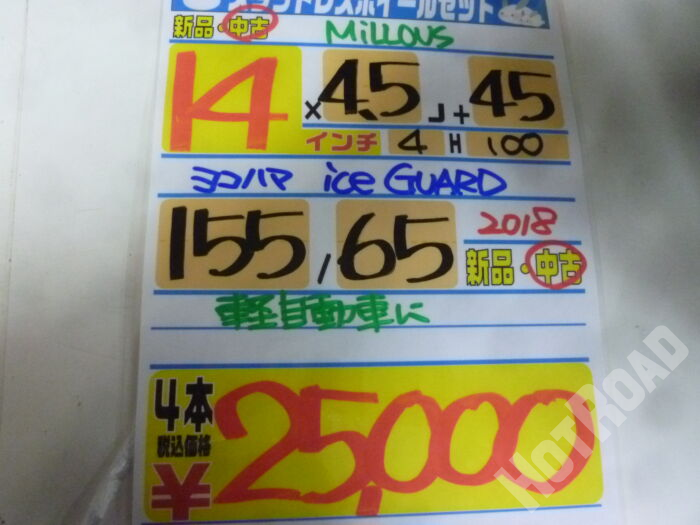 スタッドレスホイールセット
新品・中古 MiLLOUS
14 × 4.5 J + 45
インチ 4 H 100
ヨコハマ ice GUARD
155 / 65 2018
新品・中古
軽自動車に
4本
税込価格
¥25,000
HOTROAD